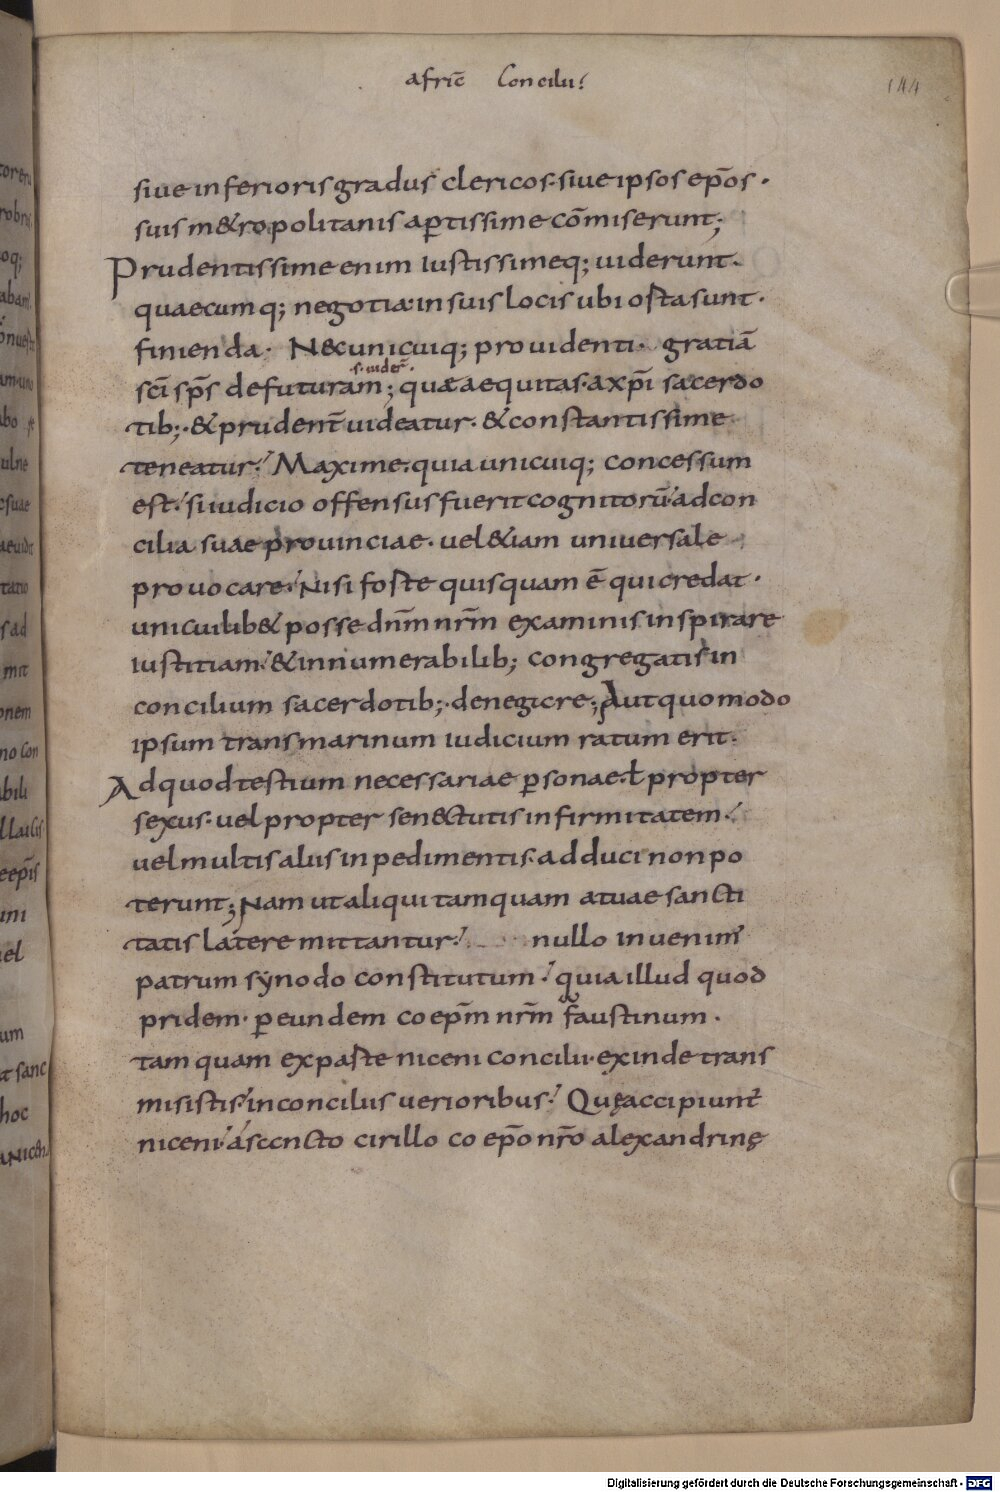 afric̄ Concilii
144
siue inferioris gradus clericos. siue ipsos ep̄os.
suis m&ropolitanis aꝑtissime cōmiserunt;
Prudentissime enim iustissimeq; uiderunt.
quaecumq; negotia. in suis locis ubi orta sunt.
finienda. Nec unicuiq; prouidenti. gratiā
sc̄i sp̄s defuturam; qua aequitas. a xp̄i sacerdo
s. uider̄.
tib;. & prudent̄ uideatur. & constantissime
teneatur. Maxime. quia unicuiq; concessum
est. si iudicio offensus fuerit cognitorū ad con
cilia suae prouinciae. uel &iam uniuersale
prouocare. Nisi forte quisquam ē qui credat.
unicuilib& posse dn̄m nr̄m examinis inspirare
iustitiam. & innumerabilib; congregatis in
concilium sacerdotib;. denegare; Aut quomodo
ipsum transmarinum iudicium ratum erit.
Ad quod testium necessariae ꝑsonae. ł propter
sexus. uel propter senectutis infirmitatem.
uel multis aliis inpedimentis. adduci non po
terunt; Nam ut aliqui tamquam a tuae sancti
tatis latere mittantur. nullo inuenim̄
patrum synodo constitutum. quia illud quod
pridem. ꝑ eundem coep̄m nr̄m faustinum.
tamquam ex parte niceni concilii. exinde trans
misistis. in conciliis uerioribus. Quę accipiunt̄
niceni. a sc̄o cirillo coep̄o nr̄o alexandrinę
Digitalisierung gefördert durch die Deutsche Forschungsgemeinschaft - DFG